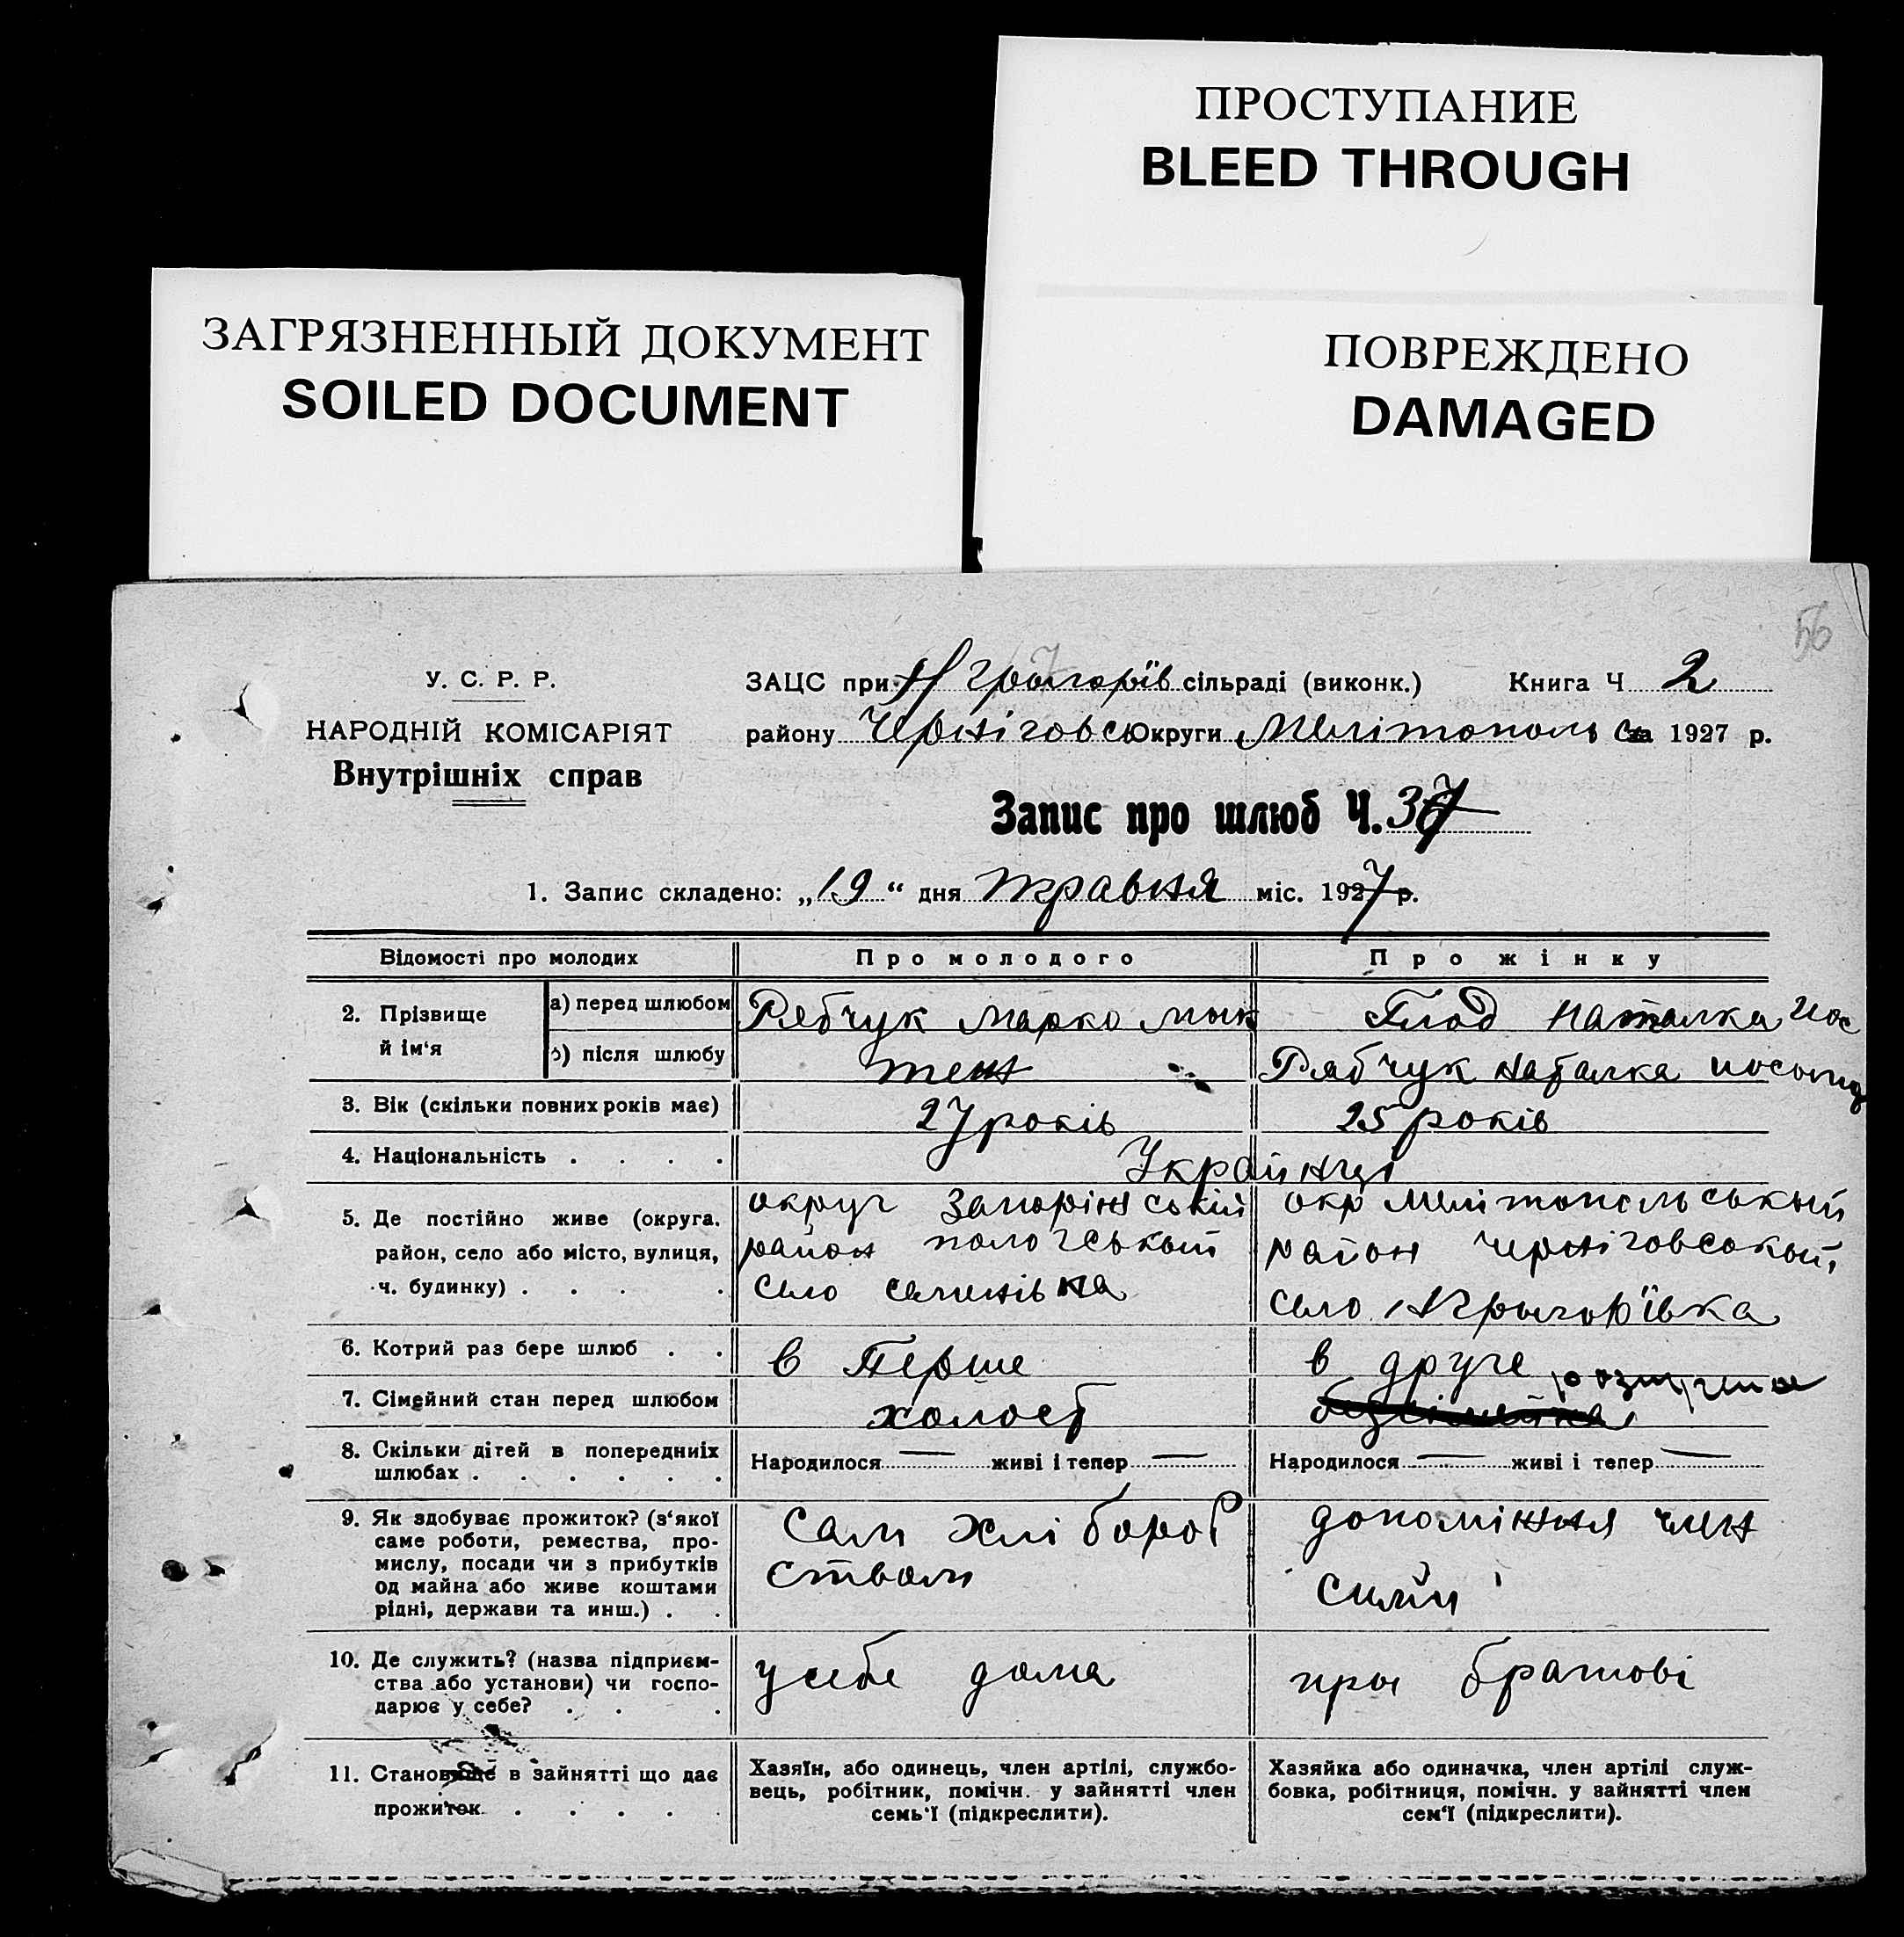 ПРОСТУПАНИЕ
BLEED THROUGH
ЗАГРЯЗНЕННЫЙ ДОКУМЕНТ
SOILED DOCUMENT
ПОВРЕЖДЕНО
DAMAGED
56
У. С. Р. Р.
НАРОДНІЙ КОМІСАРІЯТ
Внутрішніх справ
ЗАЦС при Н Григоріїв сільраді (виконк.) Книга Ч 2
району Черніговсь Округи Мелітопольс за 1927 р.
Запис про шлюб Ч. 37
1. Запис складено: „19“ дня травня міс. 1927 р.
Відомості про молодих Про молодого Про жінку
2. Прізвище й ім‘я
а) перед шлюбом Рябчук Марко Мык Глод Наталка Иос
б) після шлюбу тент Рябчук Наталка
3. Вік (скільки повних років має) 27 років 25 років
4. Національність . . . . Українці
5. Де постійно живе (округа. район, село або місто, вулиця, ч. будинку) . . . .
округ Запоріжський
район пологський
село семенівка
окр Мелітопольський
район черніговський,
село Н Григорївка
6. Котрий раз бере шлюб . . в Перше в друге
7. Сімейний стан перед шлюбом холост
8. Скільки дітей в попередниіх шлюбах . . . . . .
Народилося — живі і тепер —
Народилося — живі і тепер —
9. Як здобуває прожиток? (з‘якої
саме роботи, ремества, про-
мислу, посади чи з прибутків
од майна або живе коштами
рідні, держави та инш.) . .
Сам хлібороб
ством
допоміжня член
симїи
10. Де служить? (назва підприєм-
ства або установи) чи госпо-
дарює у себе? . . .
у себе дома
при братові
11. Становище в зайнятті що дає
прожиток . . . . .
Хазяїн, або одинець, член артілі, службо-
вець, робітник, помічн. у зайнятті член
семь‘ї (підкреслити).
Хазяйка або одиначка, член артілі служ-
бовка, робітниця, помічн. у зайнятті член
сем‘ї (підкреслити).